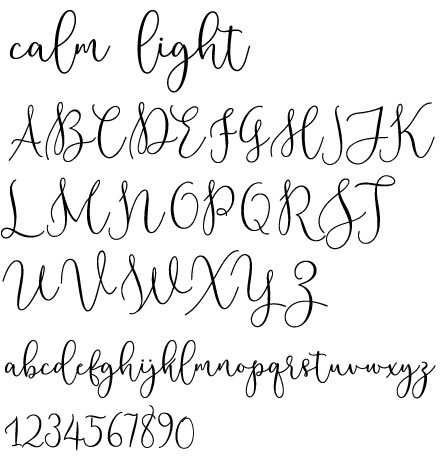 calm light
ABCDEFGHIJK
LMNOPQRST
UVWXYZ
abcdefghijklmnopqrstuvwxyz
1234567890